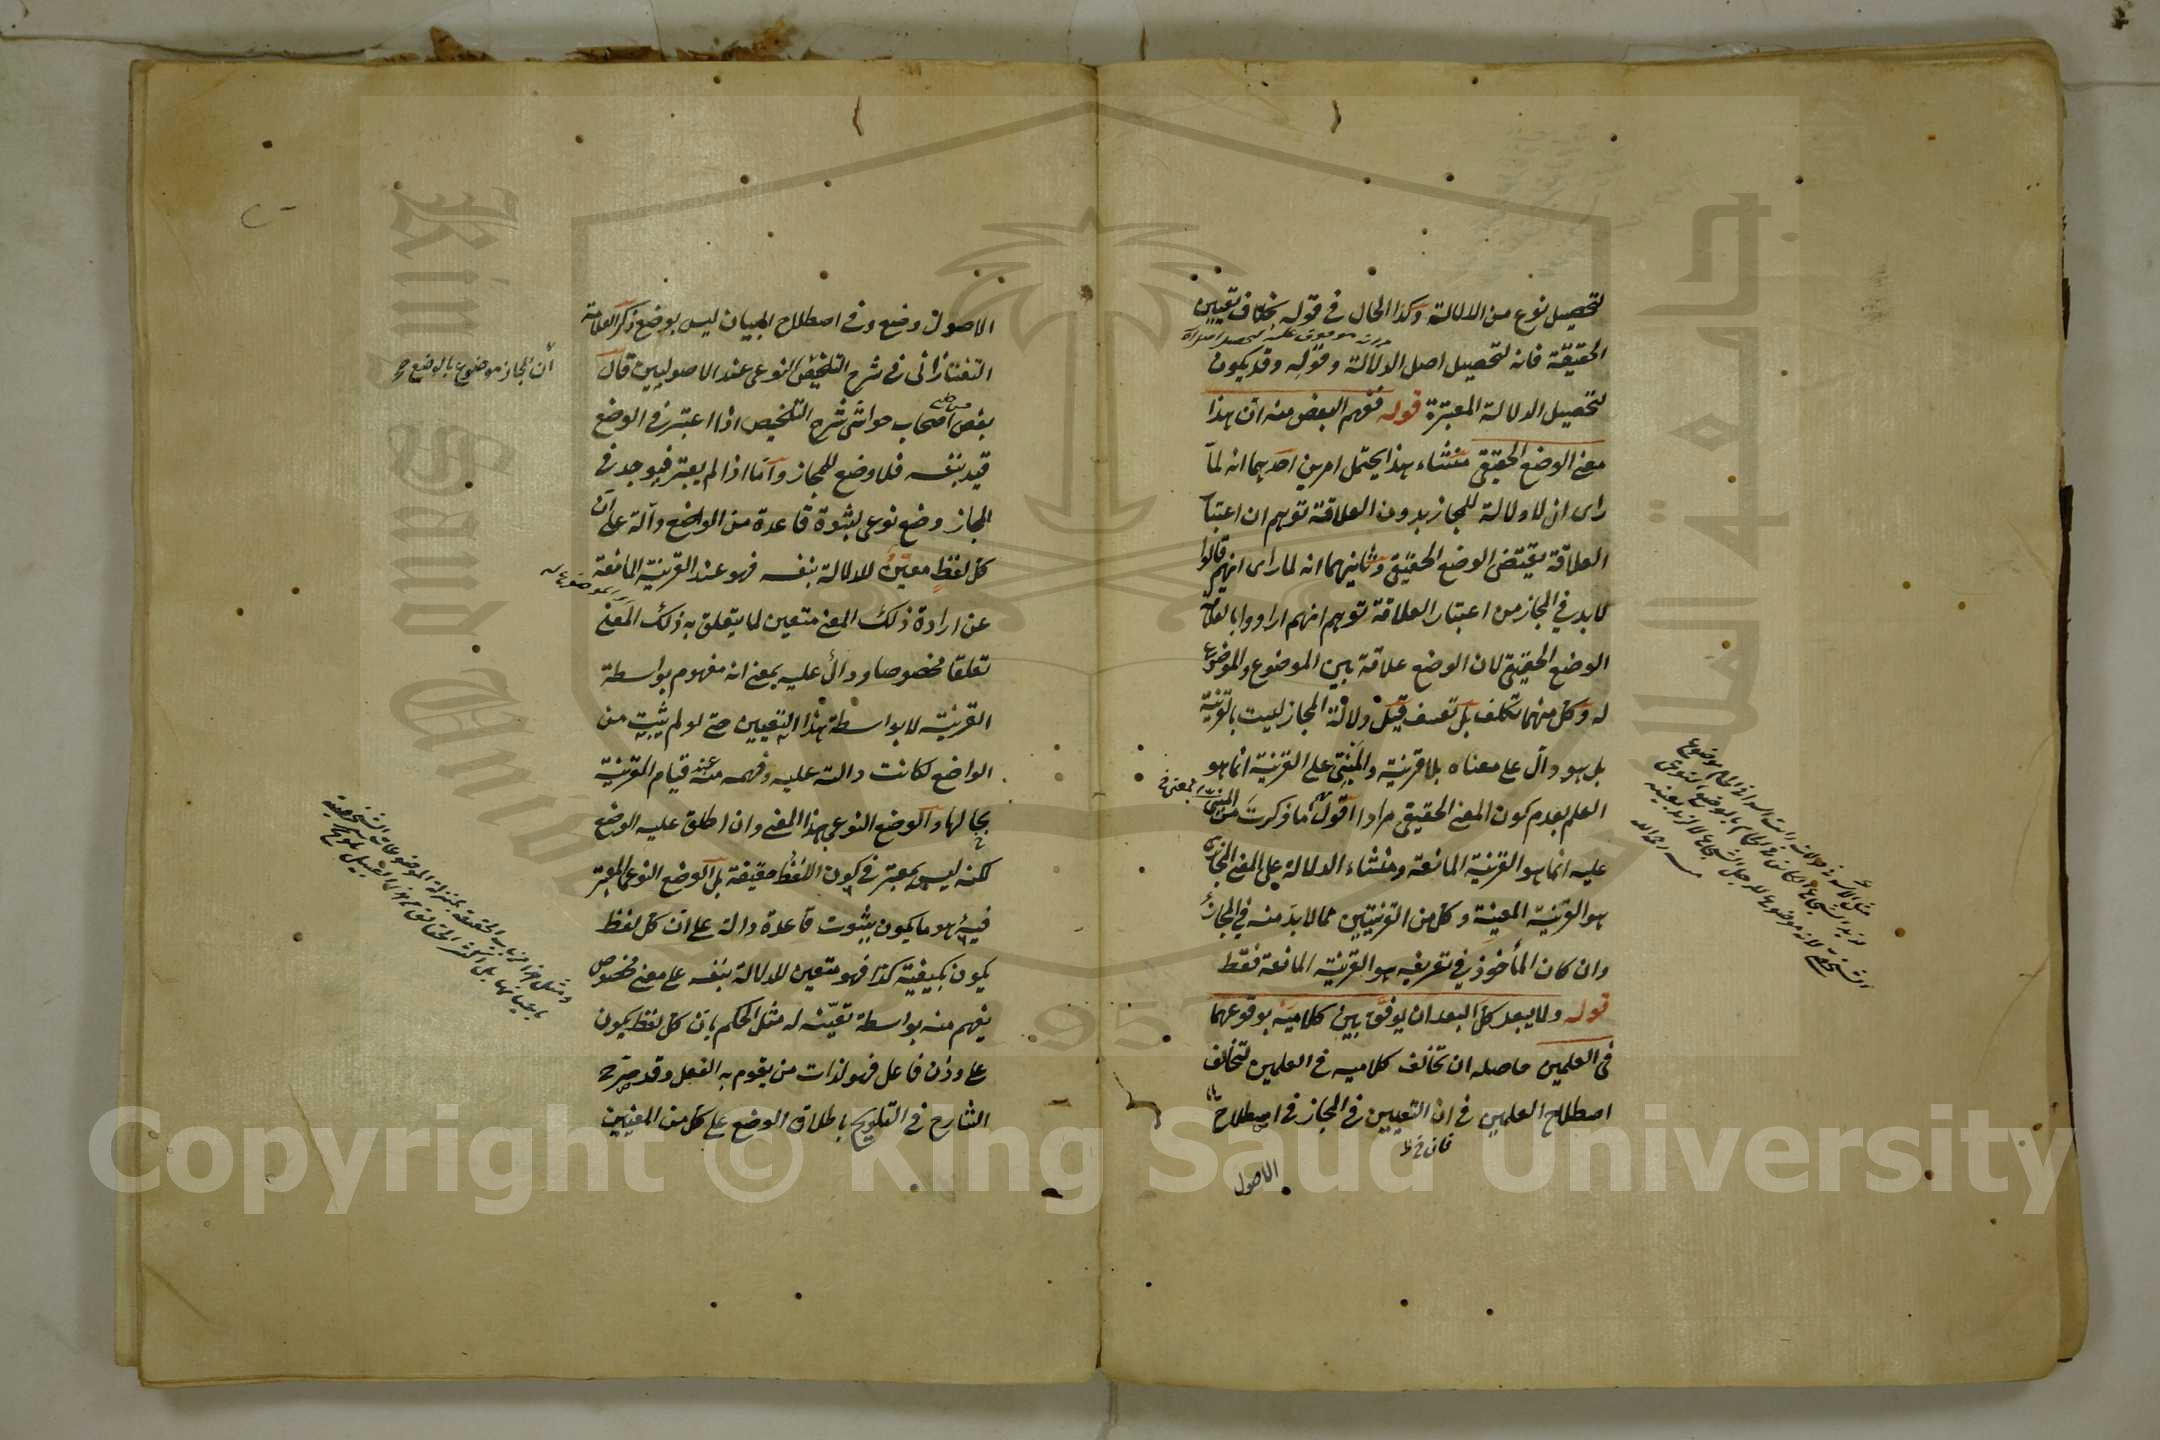 لتحصيل نوع من الدلالة وكذا الحال في قوله بخلاف تعيين
الحقيقة فانه لتحصيل اصل الدلالة وقوله وقد يكون
لتحصيل الدلالة المعتبرة قوله ففهم البعض منه ان هذا
معنى الوضع الحقيقي منشاء هذا يحتمل امرين احدهما انه لما
راى ان لا دلالة للمجاز بدون العلاقة توهم ان اعتبار
العلاقة يقتضى الوضع الحقيقي وثانيهما انه لما راى انهم قالوا
لا بد في المجاز من اعتبار العلاقة توهم انهم ارادوا بالعلاقة
الوضع الحقيقي لان الوضع علاقة بين الموضوع والموضوع
له وكل منهما تكلف بل تعسف قيل دلالة المجاز ليست بالقرينة
بل هو دال على معناه بلا قرينة والمبنى على القرينة انما هو
العلم بعدم كون المعنى الحقيقي مرادا اقول ما ذكرت من المبنى
عليه انما هو القرينة المانعة ومنشاء الدلالة على المعنى المجازى
هو القرينة المعينة وكل من القرينتين مما لا بد منه في المجاز
وان كان المأخوذ في تعريفه هو القرينة المانعة فقط
قوله ولا يبعد كل البعد ان يوفق بين كلاميه بوقوعهما
في العلمين حاصله ان تخالف كلاميه في العلمين لتخالف
اصطلاح العلمين في ان التعيين في المجاز في اصطلاح
الاصول
الاصول وضع وفي اصطلاح البيان ليس بوضع ذكر العلامة
التفتازانى في شرح التلخيص النوعى عند الاصوليين قال
ان المجاز موضوع بالوضع
بعض اصحاب حواشى شرح التلخيص اذا اعتبر في الوضع
قيد بنفسه فلا وضع للمجاز واما اذا لم يعتبر فيوجد في
المجاز وضع نوعى بثبوت قاعدة من الواضع دالة على ان
كل لفظ معين للدلالة بنفسه فهو عند القرينة المانعة
عن ارادة ذلك المعنى متعين لما يتعلق به ذلك المعنى
تعلقا مخصوصا ودال عليه بمعنى انه مفهوم بواسطة
القرينة لا بواسطة هذا التعيين حتى لو لم يثبت من
الواضع لكانت دالته عليه وفهمه منه عند قيام القرينة
بحالها والوضع النوعى بهذا المعنى وان اطلق عليه الوضع
لكنه ليس بمعتبر في كون اللفظ حقيقة بل الوضع النوعى المعتبر
فيه هو ما يكون بثبوت قاعدة دالة على ان كل لفظ
يكون بكيفية كذا فهو متعين للدلالة بنفسه على معنى مخصوص
يفهم منه بواسطة تعينه له مثل الحكم بان كل لفظ يكون
على وزن فاعل فهو لذات من يقوم به الفعل وقد صرح
الشارح في التلويح باطلاق الوضع على كل من المعنيين
King Saud University
Copyright © King Saud University